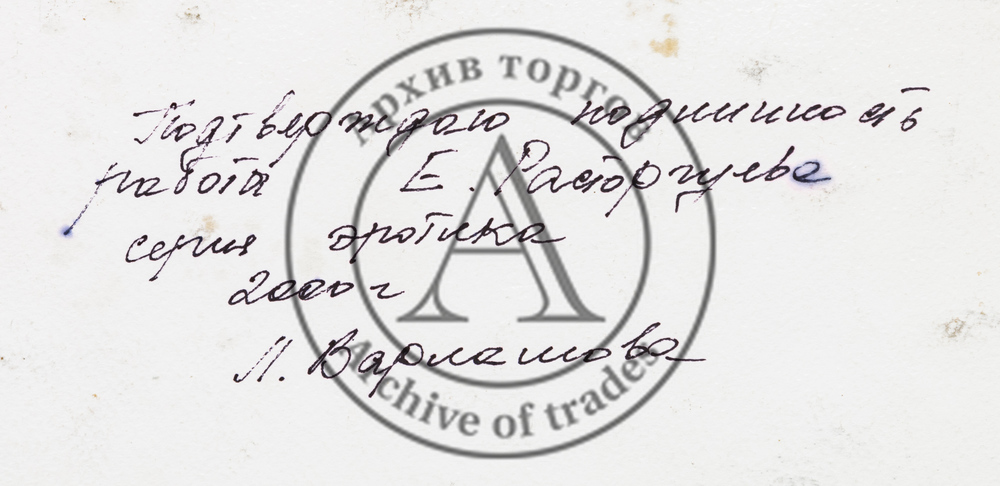 архив торгов
Подтверждаю подлинность
работы Е. Расторгуева
серия эротика
2000 г
Л. Варламова
Archive of trades